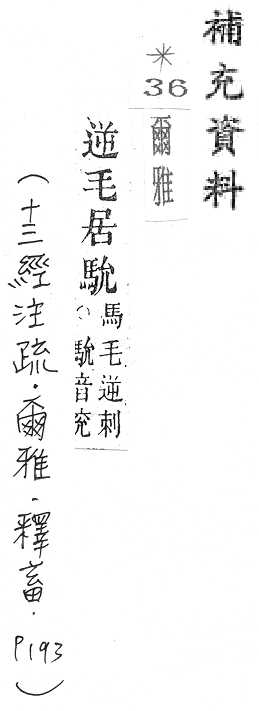 補充資料
＊
36
爾雅
逆毛居馻
馬毛逆刺
○馻音兖
（十三經注疏．爾雅．釋畜．P193）